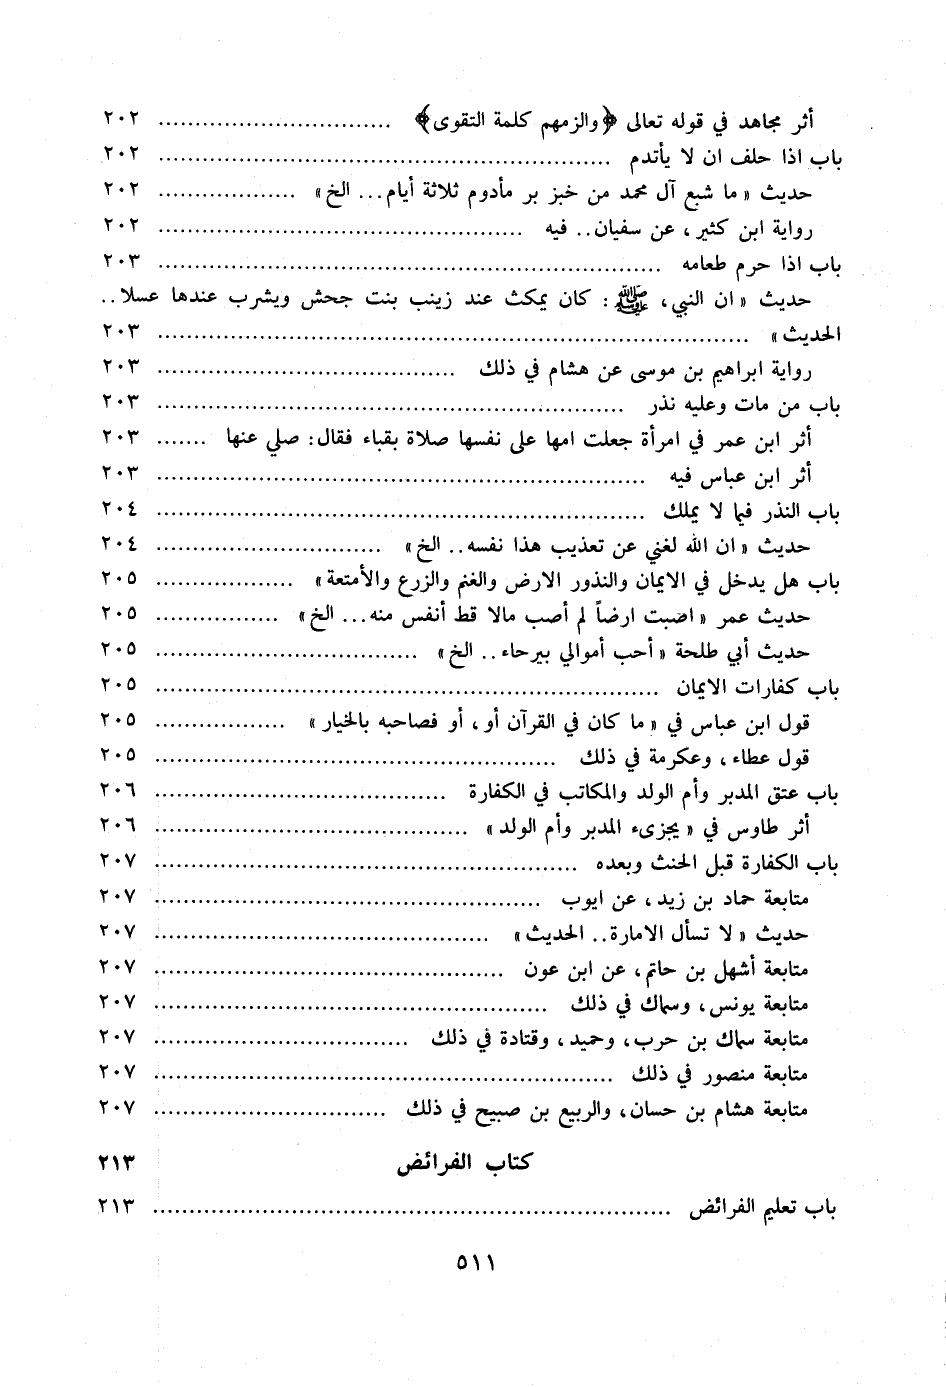 أثر مجاهد في قوله تعالى ﴿والزمهم كلمة التقوى﴾ ................................ ٢٠٢
باب اذا حلف ان لا يأتدم ................................ ٢٠٢
حديث « ما شبع آل محمد من خبز بر مأدوم ثلاثة أيام... الخ » ................... ٢٠٢
رواية ابن كثير ، عن سفيان.. فيه ................................ ٢٠٢
باب اذا حرم طعامه ................................ ٢٠٣
حديث « ان النبي، ﷺ: كان يمكث عند زينب بنت جحش ويشرب عندها عسلا..
الحديث » ................................ ٢٠٣
رواية ابراهيم بن موسى عن هشام في ذلك ................................ ٢٠٣
باب من مات وعليه نذر ................................ ٢٠٣
أثر ابن عمر في امرأة جعلت امها على نفسها صلاة بقباء فقال: صلي عنها ....... ٢٠٣
أثر ابن عباس فيه ................................ ٢٠٣
باب النذر فيما لا يملك ................................ ٢٠٤
حديث « ان الله لغني عن تعذيب هذا نفسه.. الخ » ................................ ٢٠٤
باب هل يدخل في الايمان والنذور الارض والغنم والزرع والأمتعة » ................... ٢٠٥
حديث عمر « اضبت ارضاً لم أصب مالا قط أنفس منه... الخ » ................. ٢٠٥
حديث أبي طلحة « أحب أموالي بيرحاء.. الخ » ................................ ٢٠٥
باب كفارات الايمان ................................ ٢٠٥
قول ابن عباس في « ما كان في القرآن أو ، أو فصاحبه بالخيار » .................. ٢٠٥
قول عطاء ، وعكرمة في ذلك ................................ ٢٠٥
باب عتق المدبر وأم الولد والمكاتب في الكفارة ................................ ٢٠٦
أثر طاوس في « يجزىء المدبر وأم الولد » ................................ ٢٠٦
باب الكفارة قبل الحنث وبعده ................................ ٢٠٧
متابعة حماد بن زيد ، عن ايوب ................................ ٢٠٧
حديث « لا تسأل الامارة.. الحديث » ................................ ٢٠٧
متابعة أشهل بن حاتم، عن ابن عون ................................ ٢٠٧
متابعة يونس، وسماك في ذلك ................................ ٢٠٧
متابعة سماك بن حرب، وحميد ، وقتادة في ذلك ................................ ٢٠٧
متابعة منصور في ذلك ................................ ٢٠٧
متابعة هشام بن حسان، والربيع بن صبيح في ذلك ................................ ٢٠٧
كتاب الفرائض ٢١٣
باب تعليم الفرائض ................................ ٢١٣
٥١١